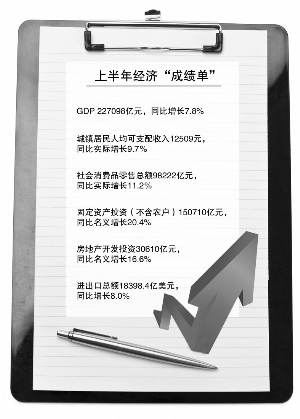 上半年经济“成绩单”
GDP 227098亿元，同比增长7.8%
城镇居民人均可支配收入12509元，
同比实际增长9.7%
社会消费品零售总额98222亿元，
同比实际增长11.2%
固定资产投资（不含农户）150710亿元，
同比名义增长20.4%
房地产开发投资30610亿元，
同比名义增长16.6%
进出口总额18398.4亿美元，
同比增长8.0%